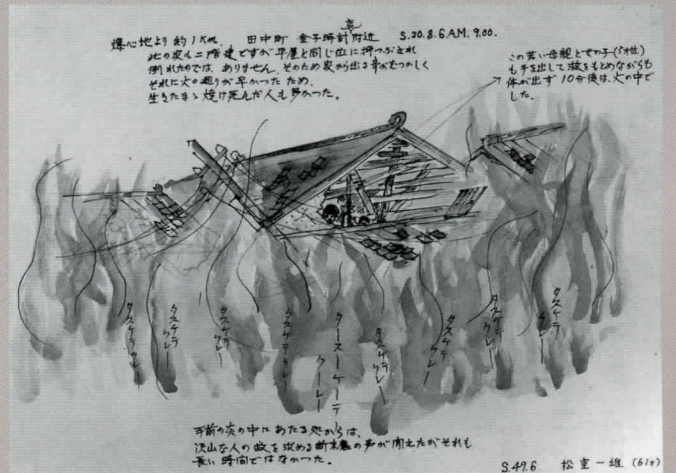 爆心地より約1Km. 田中町 金子時計店附近 S.20.8.6.A.M.9.00.
此の家も二階建ですが平屋と同じ位に押つぶされ
倒れたのでは、ありません。そのため家から出る事がむつかしく
それに火の廻りが早かった ため、
生きたまゝ焼け死んだ人も多かった。
この若い母親と女の子(5才位)
も手を出して救をもとめながらも
体が出ず 10分後は、火の中で
した。
タスケテクレー
タスケテクレー
タスケテクレー
タスケテクレー
タースーケーテクーレー
タスケテクレー
タスケテクレー
タスケテクレー
タスケテクレー
手前の炎の中にあたる処からは、
沢山な人の救を求める断末魔の声が聞えたがそれも
長い時間ではなかった。
S.49.6. 松室一雄 (61才)